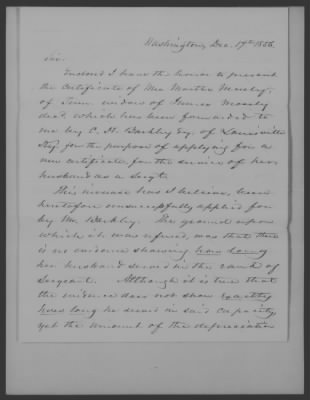 Washington, Dec. 17th 1856.
Sir.
Enclosed I have the honor to present
the certificate of Mrs Martha Mosely,
of Tenn. widow of James Mosely
decd, which has been forwarded to
me by C. H. Barkley Esq. of Louisville
Ky, for the purpose of applying for a
new certificate for the service of her
husband as a Sergt.
This increase has I believe, been
heretofore unsuccessfully applied for
by Mr. Barkley. The ground upon
which it was refused, was that there
is no evidence showing how long
her husband served in the rank of
Sergeant. Although it is true that
the evidence does not show exactly
how long he served in said capacity,
yet the amount of the depreciation